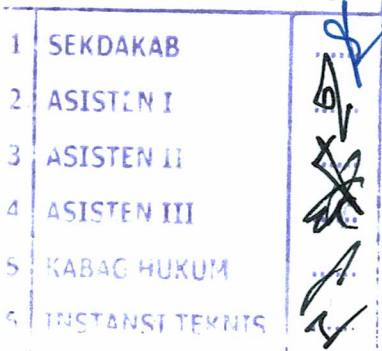 1 SEKDAKAB ......
2 ASISTEN I ......
3 ASISTEN II ......
4 ASISTEN III ......
5 KABAG HUKUM ......
6 INSTANSI TEKNIS ......